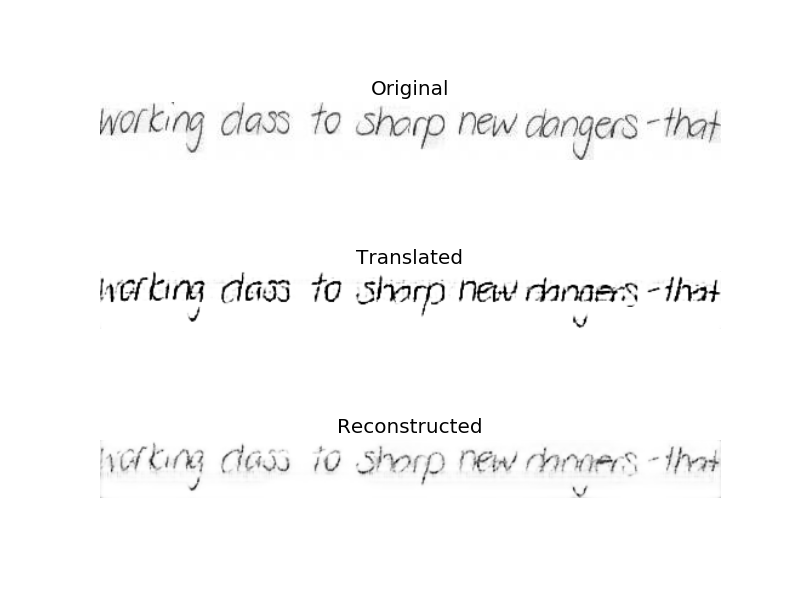 Original
working class to sharp new dangers - that
Translated
working class to sharp new dangers - that
Reconstructed
working class to sharp new dangers - that